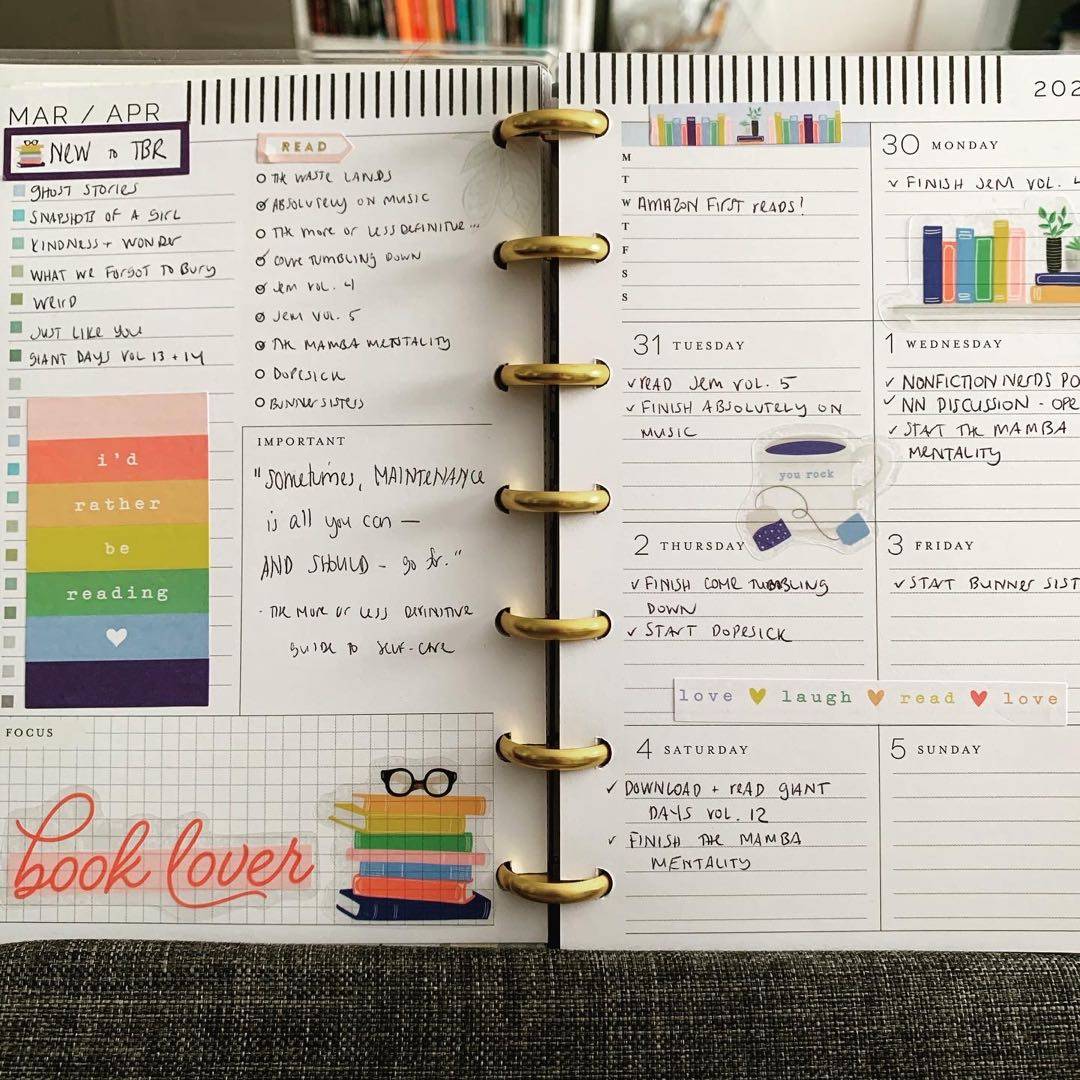 MAR / APR
NEW TO TBR
GHOST STORIES
SNAPSHOTS OF A GIRL
KINDNESS + WONDER
WHAT WE FORGOT TO BURY
WEIRD
JUST LIKE YOU
GIANT DAYS VOL 13 + 14
i'd
rather
be
reading
READ
THE WASTE LANDS
ABSOLUTELY ON MUSIC
THE MORE OR LESS DEFINITIVE...
COME TUMBLING DOWN
JEM VOL. 4
JEM VOL. 5
THE MAMBA MENTALITY
DOPESICK
BUNNER SISTERS
IMPORTANT
"Sometimes, MAINTENANCE
is all you can —
AND SHOULD - go for."
- THE MORE OR LESS DEFINITIVE
GUIDE TO SELF-CARE
FOCUS
book lover
202
M
T
W AMAZON FIRST READS!
T
F
S
S
30 MONDAY
✓ FINISH JEM VOL. 4
31 TUESDAY
✓ READ JEM VOL. 5
✓ FINISH ABSOLUTELY ON
MUSIC
you rock
1 WEDNESDAY
✓ NONFICTION NERDS PO
✓ NN DISCUSSION - OPE
✓ START THE MAMBA
MENTALITY
2 THURSDAY
✓ FINISH COME TUMBLING
DOWN
✓ START DOPESICK
3 FRIDAY
✓ START BUNNER SIST
love laugh read love
4 SATURDAY
✓ DOWNLOAD + READ GIANT
DAYS VOL. 12
✓ FINISH THE MAMBA
MENTALITY
5 SUNDAY